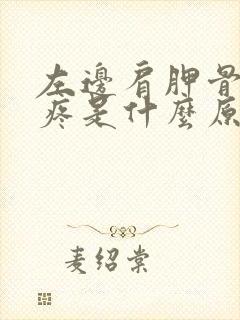 左邊肩胛骨
疼是什麼原
麦绍棠